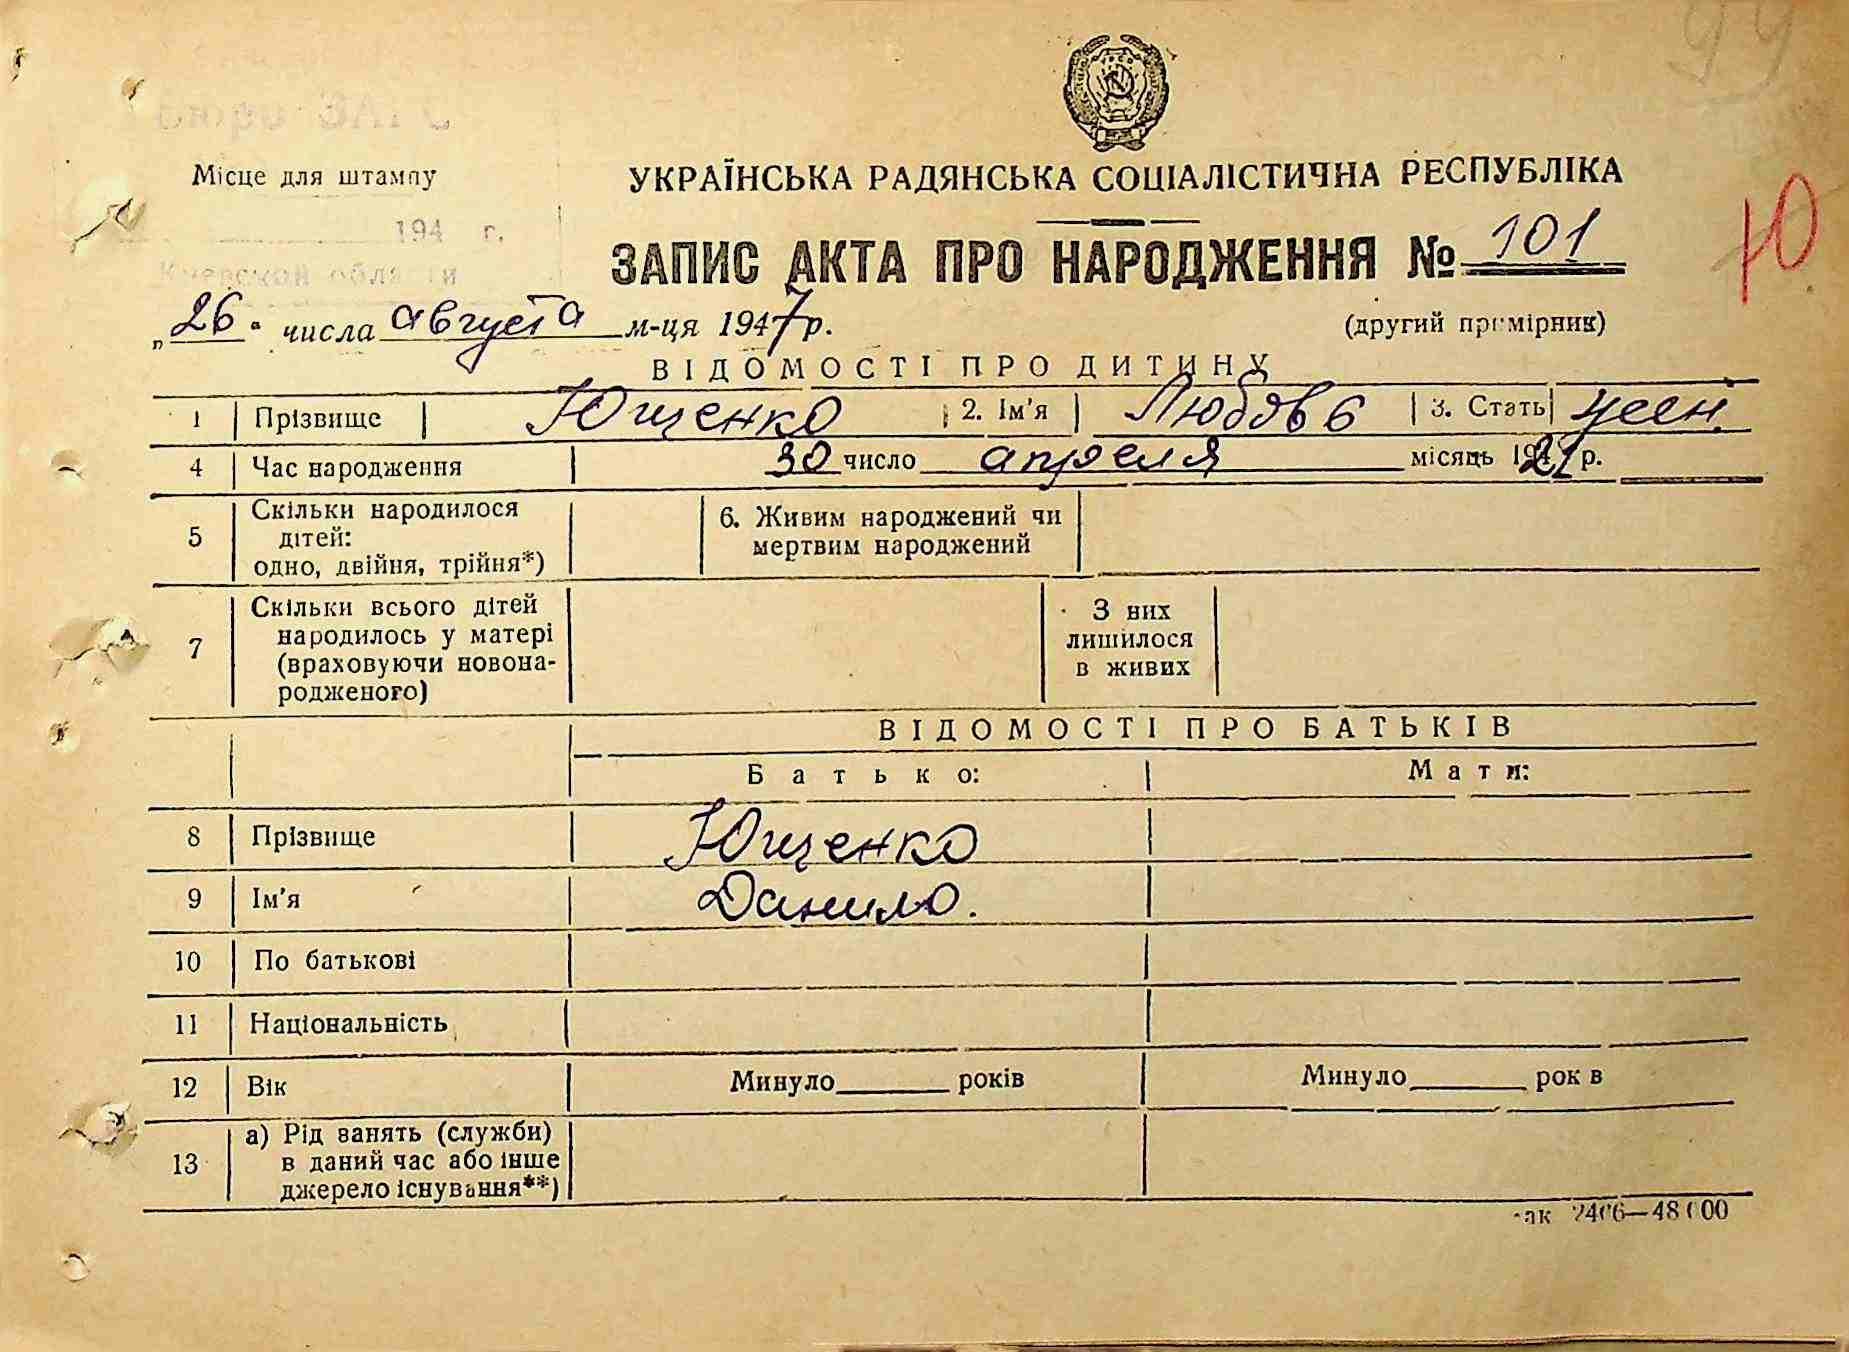 бюро ЗАГС
Місце для штампу
194 г.
Киевской области
УКРАЇНСЬКА РАДЯНСЬКА СОЦІАЛІСТИЧНА РЕСПУБЛІКА
ЗАПИС АКТА ПРО НАРОДЖЕННЯ № 101
Ю
„26" числа августа м-ця 1947 р.
(другий примірник)
ВІДОМОСТІ ПРО ДИТИНУ
1 Прізвище Ющенко 2. Ім'я Любовь 3. Стать жен.
4 Час народження 30 число апреля місяць 19 р.
5 Скільки народилося дітей: одно, двійня, трійня*) 6. Живим народжений чи мертвим народжений
7 Скільки всього дітей народилось у матері (враховуючи новонародженого) З них лишилося в живих
ВІДОМОСТІ ПРО БАТЬКІВ
Батько: Мати:
8 Прізвище Ющенко
9 Ім'я Данило.
10 По батькові
11 Національність
12 Вік Минуло років Минуло рок в
13 а) Рід занять (служби) в даний час або інше джерело існування**)